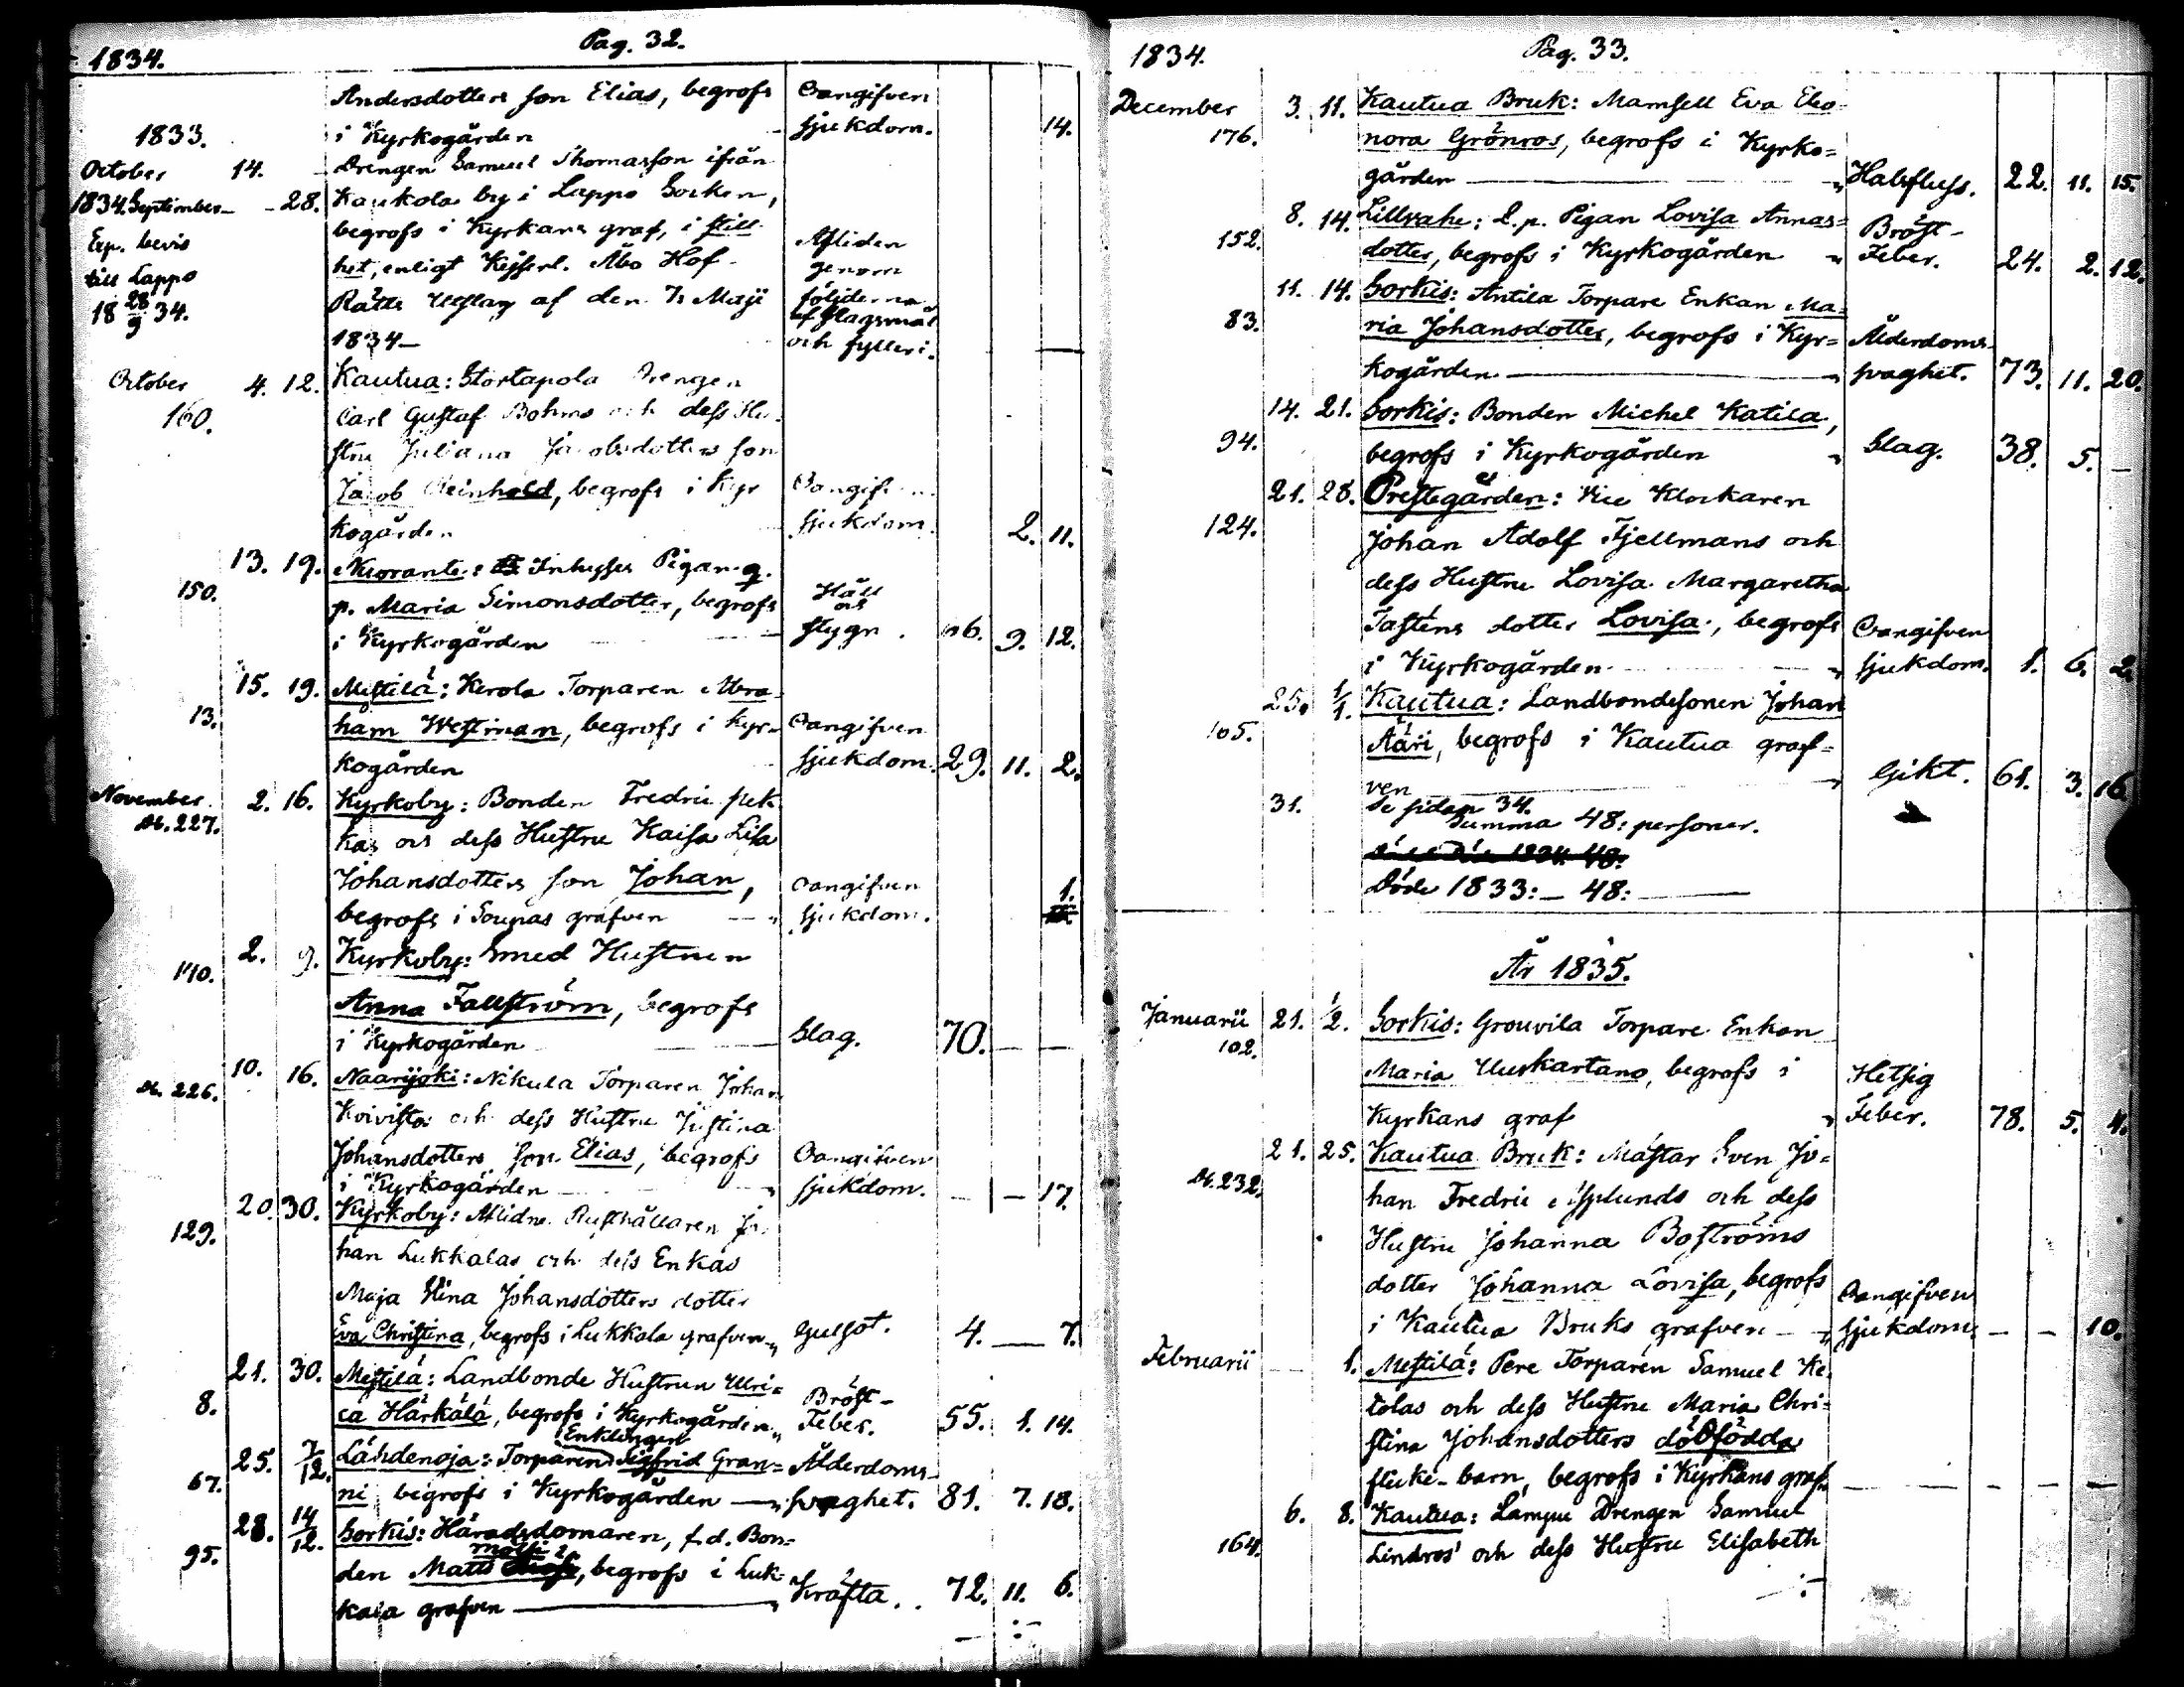 1834.
Pag. 32.
Andersdotters son Elias, begrofs Oangifven
i Kyrkogården sjukdom. 14.
1833.
October 14. Drengen Samuel Thomasson ifrån
1834. September 28. Kaukola by i Lappo Socken,
Exp. bevis begrofs i Kyrkans graf, i still- Afliden
till Lappo het, enligt Kejserl. Åbo Hof- genom
18 28/9 34. Rätts Utslag af den Maji följderna
af slagsmål
1834 — och fylleri. —
October 4. 12. Kautua: Stortapola Drengen
160. Carl Gustaf Bohms och dess Hu-
stru Juliana Jacobsdotters son
Jacob Reinhold, begrofs i Kyr- Oangifven
kogården sjukdom. 2. 11.
13. 19. Nuorante: Inhyses Pigan q.
150. p. Maria Simonsdotter, begrofs Håll och
i Kyrkogården stygn. 66. 9. 12.
15. 19. Mestilä: Kerola Torparen Abra-
13. ham Westman, begrofs i Kyr- Oangifven
kogården sjukdom. 29. 11. 2.
November 2. 16. Kyrkoby: Bonden Fredric
N. 227. och dess Hustru Kaisa Lisa
Johansdotters son Johan, Oangifven 1.
begrofs i Soupas grafven sjukdom.
2. 9. Kyrkoby: Smed Hustrun
140. Anna Fallström, begrofs
i Kyrkogården Slag. 70. — —
10. 16. Naarijoki: Nikula Torparen Johan
N. 226. Koivistos och dess Hustru Justina
Johansdotters son Elias, begrofs Oangifven
i Kyrkogården sjukdom. — — 17.
20. 30. Kyrkoby: Aflidne Rusthållaren Jo-
129. han Lukkalas och dess Enkas
Maja Stina Johansdotters dotter
Eva Christina, begrofs i Lukkala grafven Gulsot. 4. — 7.
21. 30. Mestilä: Landbonde Hustrun Ulri- Bröst-
8. ca Härkälä, begrofs i Kyrkogården Feber. 55. 1. 14.
Enklingen
25. 7/12. Lähdenoja: Torparen Sigfrid Gran- Ålderdoms-
67. ni begrofs i Kyrkogården — svaghet. 81. 7. 18.
28. 14/12. Sorkis: Häradsdomaren, f.d. Bon-
95. den Matts begrofs i Luk- Kräfta. 72. 11. 6.
kala grafven —
1834.
Pag. 33.
December 3. 11. Kautua Bruk: Mamsell Eva Eleo-
176. nora Grönros, begrofs i Kyrko-
gården — Halsfluss. 22. 11. 15.
8. 14. Lillvahe: q. p. Pigan Lovisa Annas- Bröst-
152. dotter, begrofs i Kyrkogården Feber. 24. 2. 12.
11. 14. Sorkis: Antila Torpare Enkan Ma-
83. ria Johansdotter, begrofs i Kyr- Ålderdoms-
kogården — svaghet. 73. 11. 20.
14. 21. Sorkis: Bonden Michel Katila,
94. begrofs i Kyrkogården Slag. 38. 5. —
21. 28. Prestegården: Vice Klockaren
124. Johan Adolf Fjellmans och
dess Hustru Lovisa Margaretha
Tasténs dotter Lovisa, begrofs Oangifven
i Kyrkogården sjukdom. 1. 6. 2.
25. 1/1. Kautua: Landbondesonen Johan
105. Ääri, begrofs i Kautua graf-
ven — Gikt. 61. 3. 16.
31. Se sidan 34.
Summa 48: personer.
Döde 1833: — 48: —
År 1835.
Januarii 21. 1/2. Sorkis: Grouvila Torpare Enkan
102. Maria Uuskartano, begrofs i Hetsig
Kyrkans graf Feber. 78. 5. 4.
21. 25. Kautua Bruk: Mästar Sven Jo-
N. 232. han Fredric Asplunds och dess
Hustru Johanna Boströms
dotter Johanna Lovisa, begrofs Oangifven
i Kautua Bruks grafven sjukdom — — 10.
Februarii — 1. Mestilä: Pere Torparen Samuel Ke-
tolas och dess Hustru Maria Chri-
stina Johansdotters dödfödda
flicke-barn, begrofs i Kyrkans graf. — — —
6. 8. Kautua: Drengen Samuel
164. Lindros' och dess Hustru Elisabeth